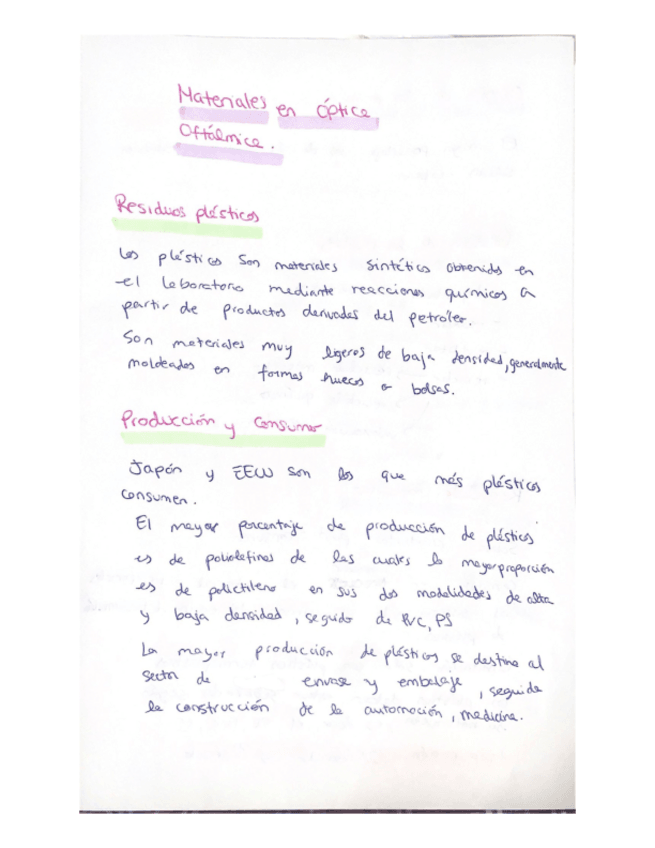 Materiales en óptica
Oftálmica.
Residuos plásticos
Los plásticos son materiales sintéticos obtenidos en
el laboratorio mediante reacciones químicas a
partir de productos derivados del petróleo.
Son materiales muy ligeros de baja densidad, generalmente
moldeados en formas huecas o bolsas.
Producción y consumo
Japón y EEUU son los que más plásticos
consumen.
El mayor porcentaje de producción de plásticos
es de poliolefinas de las cuales la mayor proporción
es de polietileno en sus dos modalidades de alta
y baja densidad, seguido de PVC, PS
La mayor producción de plásticos se destina al
sector de envase y embalaje, seguida
la construcción de la automoción, medicina.